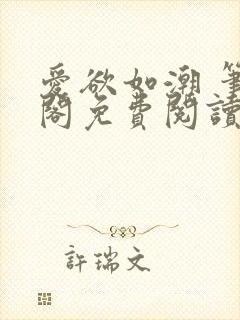 愛欲如潮 筆
閣免費閱讀
許瑞文